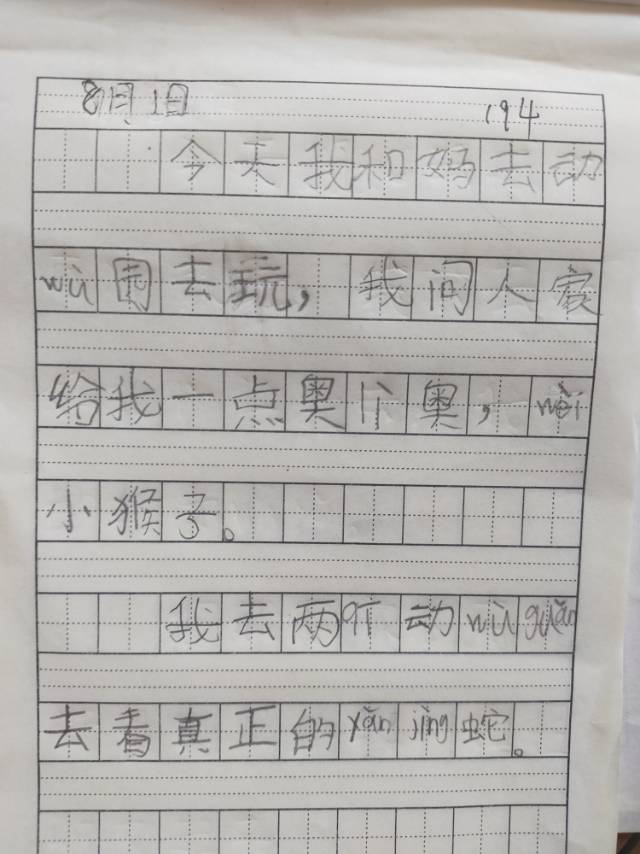 8月1日 194
今天我和妈去动
wù园去玩，我问人家
给我一点奥lì奥，wèi
小猴子。
我去两qī动wù guǎn
去看真正的yǎn jìng蛇。